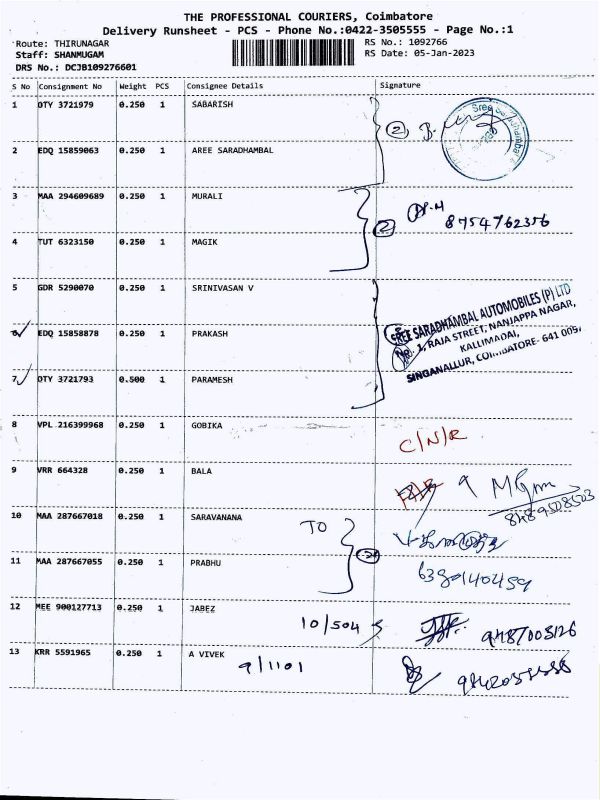 THE PROFESSIONAL COURIERS, Coimbatore
Delivery Runsheet - PCS - Phone No.:0422-3505555 - Page No.:1
Route: THIRUNAGAR
RS No.: 1092766
Staff: SHANMUGAM
RS Date: 05-Jan-2023
DRS No.: DCJB109276601
S No Consignment No Weight PCS Consignee Details Signature
1 OTY 3721979 0.250 1 SABARISH
2
2 EDQ 15859063 0.250 1 AREE SARADHAMBAL
3 MAA 294609689 0.250 1 MURALI
2 8754762356
4 TUT 6323150 0.250 1 MAGIK
5 GDR 5290070 0.250 1 SRINIVASAN V
SREE SARADHAMBAL AUTOMOBILES (P) LTD
No. 1, RAJA STREET, NANJAPPA NAGAR,
KALLIMADAI,
SINGANALLUR, COIMBATORE- 641 005.
6 EDQ 15858878 0.250 1 PRAKASH
7 OTY 3721793 0.500 1 PARAMESH
8 VPL 216399968 0.250 1 GOBIKA
C/N/R
9 VRR 664328 0.250 1 BALA
8489508503
10 MAA 287667018 0.250 1 SARAVANANA
TO
11 MAA 287667055 0.250 1 PRABHU
6380140459
12 MEE 900127713 0.250 1 JABEZ
10/504 9487003126
13 KRR 5591965 0.250 1 A VIVEK
9/1101